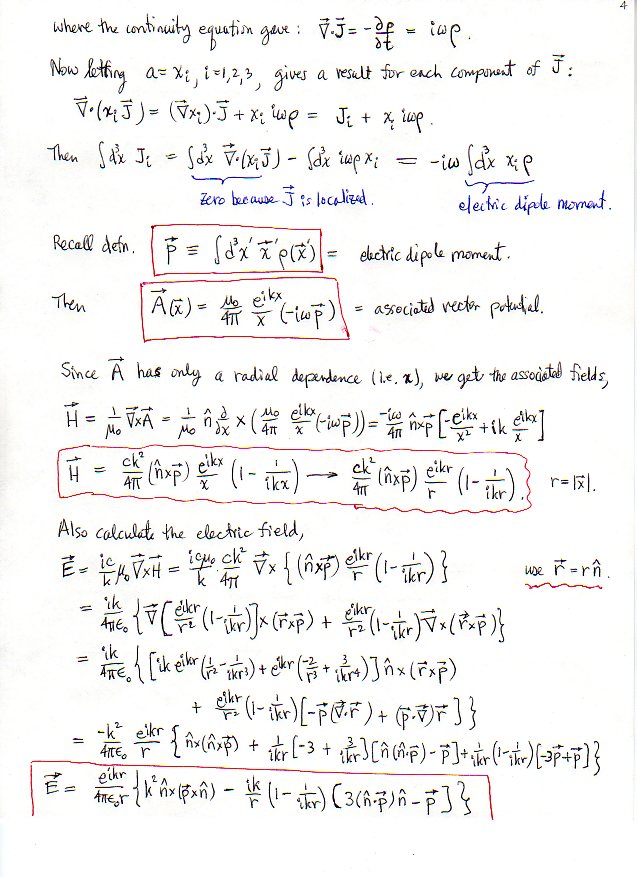 4
where the continuity equation gave: ∇⃗·J⃗ = -∂ρ/∂t = iωρ.
Now letting a = xᵢ, i=1,2,3, gives a result for each component of J⃗:
∇⃗·(xᵢJ⃗) = (∇⃗xᵢ)·J⃗ + xᵢ iωρ = Jᵢ + xᵢ iωρ.
Then ∫d³x Jᵢ = ∫d³x ∇⃗·(xᵢJ⃗) - ∫d³x iωρxᵢ = -iω∫d³x xᵢρ
zero because J⃗ is localized. electric dipole moment.
Recall defn. p⃗ ≡ ∫d³x' x⃗'ρ(x⃗') = electric dipole moment.
Then A⃗(x⃗) = μ₀/4π e^{ikx}/x (-iωp⃗) = associated vector potential.
Since A⃗ has only a radial dependence (i.e. x), we get the associated fields,
H⃗ = 1/μ₀ ∇⃗×A⃗ = 1/μ₀ n̂ ∂/∂x × (μ₀/4π e^{ikx}/x (-iωp⃗)) = -iω/4π n̂×p⃗ [-e^{ikx}/x² + ik e^{ikx}/x]
H⃗ = ck²/4π (n̂×p⃗) e^{ikx}/x (1 - 1/ikx) → ck²/4π (n̂×p⃗) e^{ikr}/r (1 - 1/ikr). r = |x⃗|.
Also calculate the electric field,
E⃗ = ic/k μ₀ ∇⃗×H⃗ = icμ₀/k ck²/4π ∇⃗× {(n̂×p⃗) e^{ikr}/r (1 - 1/ikr)} use r⃗ = r n̂.
= ik/4πε₀ {∇⃗[e^{ikr}/r² (1 - 1/ikr)]×(r⃗×p⃗) + e^{ikr}/r² (1 - 1/ikr) ∇⃗×(r⃗×p⃗)}
= ik/4πε₀ {[ik e^{ikr}(1/r² - 1/ikr³) + e^{ikr}(-2/r³ + 3/ikr⁴)] n̂×(r⃗×p⃗)
+ e^{ikr}/r² (1 - 1/ikr)[-p⃗(∇⃗·r⃗) + (p⃗·∇⃗)r⃗]}
= -k²/4πε₀ e^{ikr}/r {n̂×(n̂×p⃗) + 1/ikr [-3 + 3/ikr][n̂(n̂·p⃗) - p⃗] + 1/ikr (1 - 1/ikr)[-3p⃗+p⃗]}
E⃗ = e^{ikr}/4πε₀r {k² n̂×(p⃗×n̂) - ik/r (1 - 1/ikr)[3(n̂·p⃗)n̂ - p⃗]}